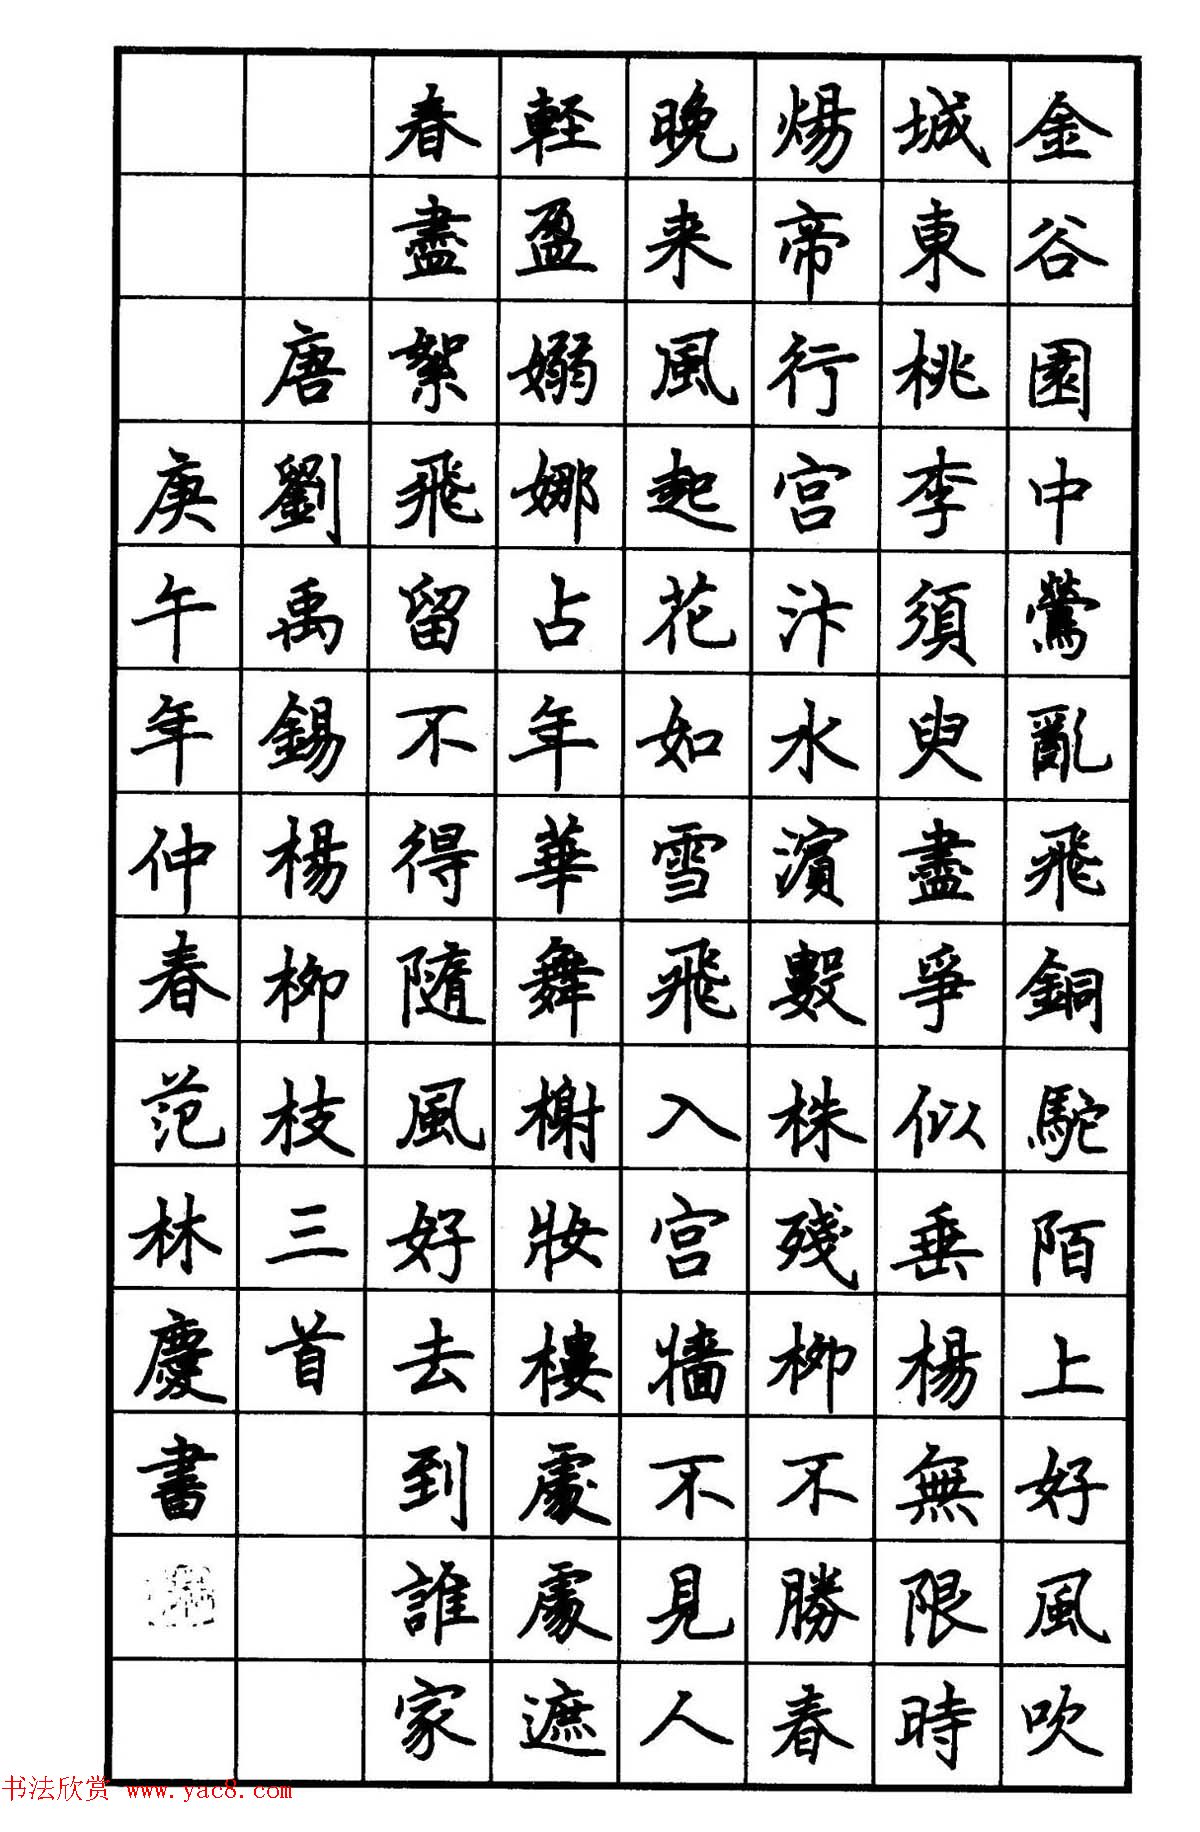 金谷園中鶯亂飛銅駝陌上好風吹
城東桃李須臾盡爭似垂楊無限時
煬帝行宫汴水濱數株殘柳不勝春
晚来風起花如雪飛入宫牆不見人
軽盈嫋娜占年華舞榭妝樓處處遮
春盡絮飛留不得隨風好去到誰家
唐劉禹錫楊柳枝三首
庚午年仲春范林慶書
书法欣赏 www.yac8.com